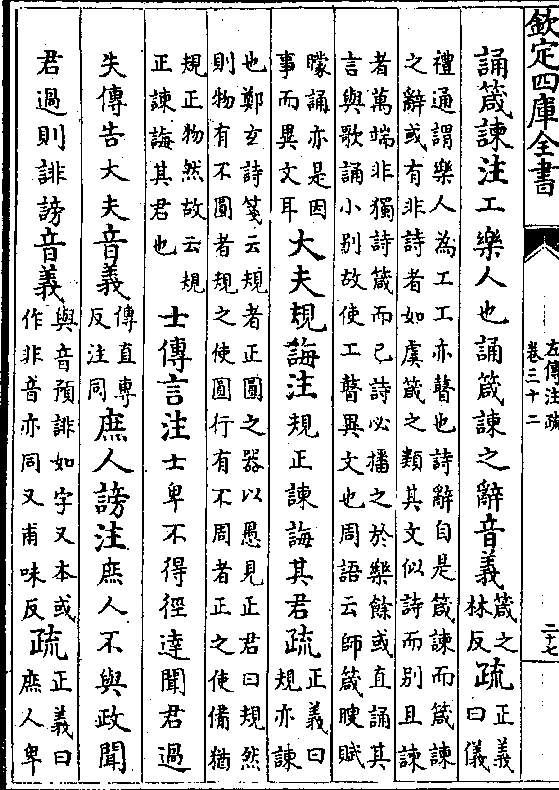 欽定四庫全書
左傳注疏
卷三十二
二十七
誦箴諫注工樂人也誦箴諫之辭音義箴之林反疏正義曰儀
禮通謂樂人為工工亦瞽也詩辭自是箴諫而箴諫
之辭或有非詩者如虞箴之類其文似詩而别且諫
者萬端非獨詩箴而已詩必播之於樂餘或直誦其
言與歌誦小别故使工瞽異文也周語云師箴瞍賦
矇誦亦是因事而異文耳大夫規誨注規正諫誨其君疏正義曰規亦諫
也鄭玄詩箋云規者正圓之器以愚見正君曰規然
則物有不圓者規之使圓行有不周者正之使備猶
規正物然故云規正諫誨其君也士傳言注士卑不得徑達聞君過
失傳告大夫音義傳直專反注同庶人謗注庶人不與政聞
君過則誹謗音義與音預誹如字又本或作非音亦同又甫味反疏正義曰庶人卑